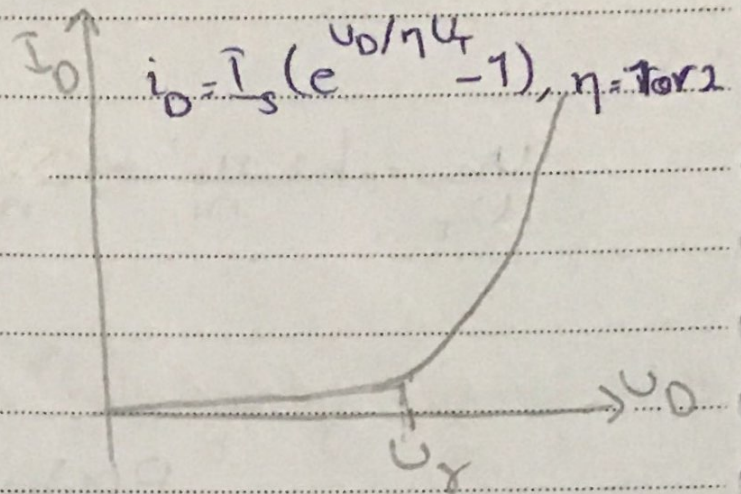 I_D
i_D = I_s (e^{U_D/ηU_T} - 1), η = 1 or 2
U_D
U_γ